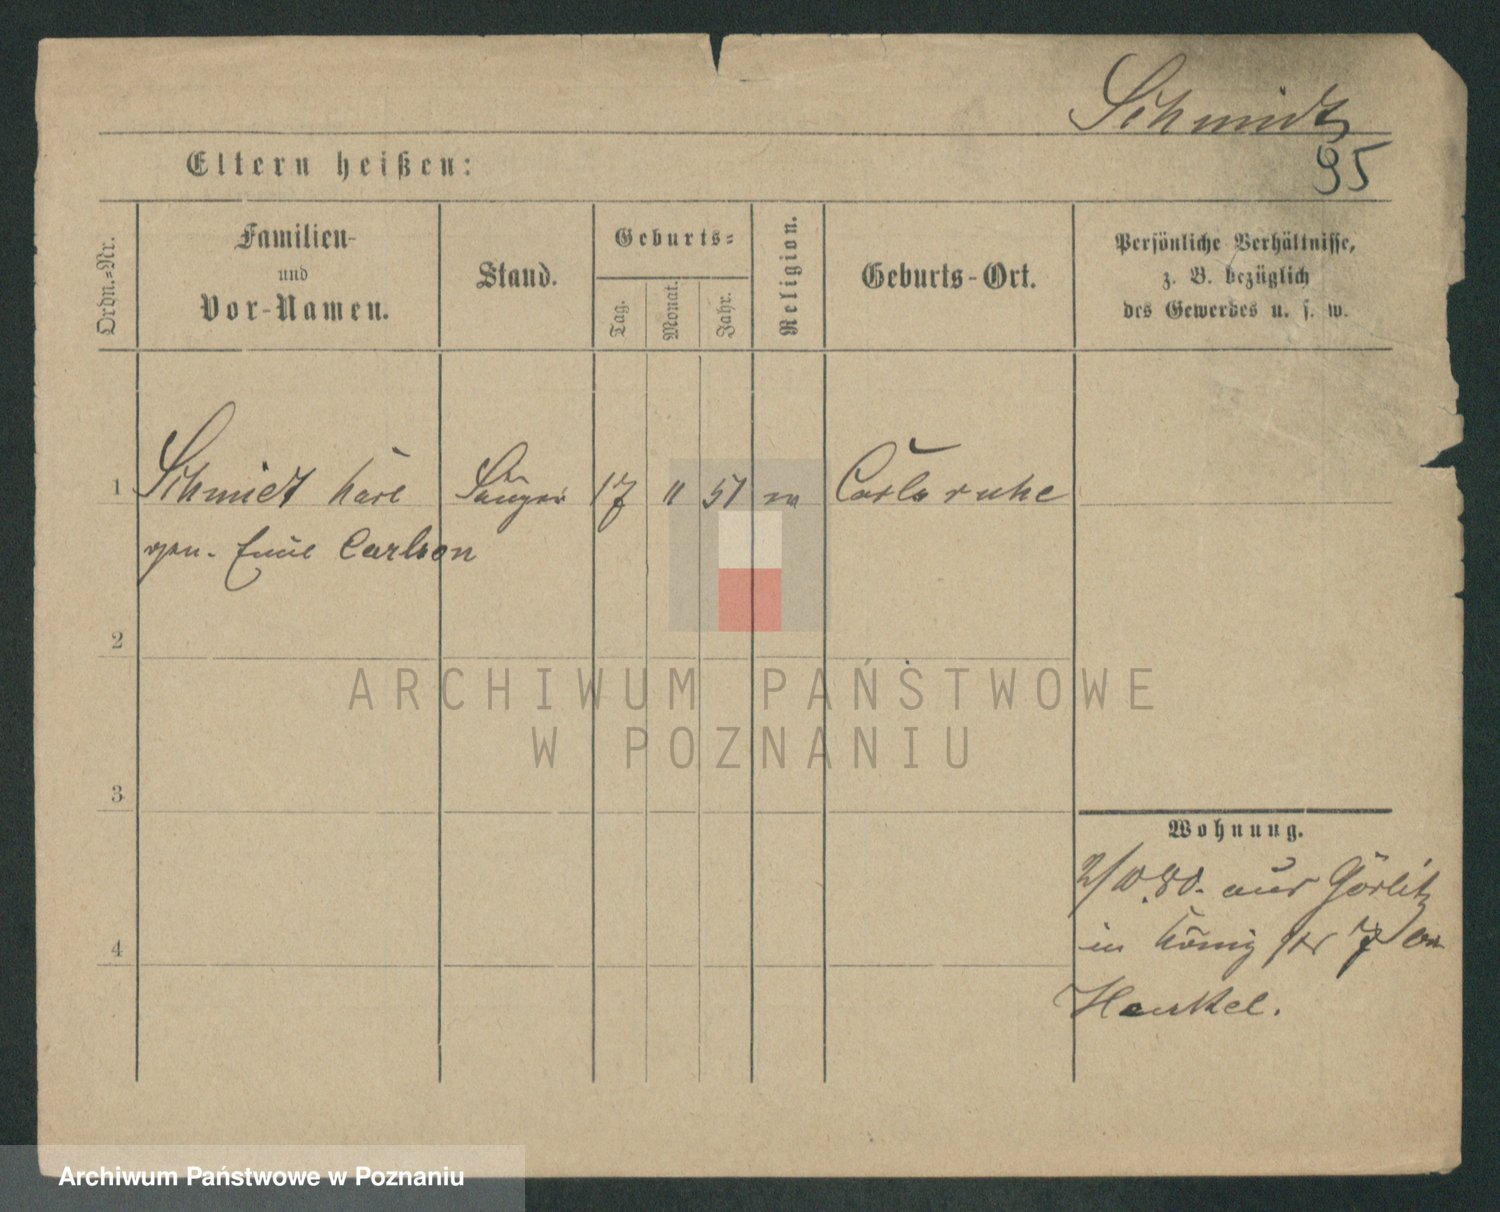 Schmidt
95
Eltern heißen:
Ordn.=Nr.
Familien-
und
Vor-Namen.
Stand.
Geburts=
Tag.
Monat.
Jahr.
Religion.
Geburts-Ort.
Persönliche Verhältnisse,
z. B. bezüglich
des Gewerbes u. s. w.
1 Schmidt Karl Sänger 17 11 51 Carlsruhe
gen. Emil Carlson
2
ARCHIWUM PAŃSTWOWE
W POZNANIU
3
Wohnung.
2/10.80. aus Görlitz
in König str 7
4
Henkel.
Archiwum Państwowe w Poznaniu